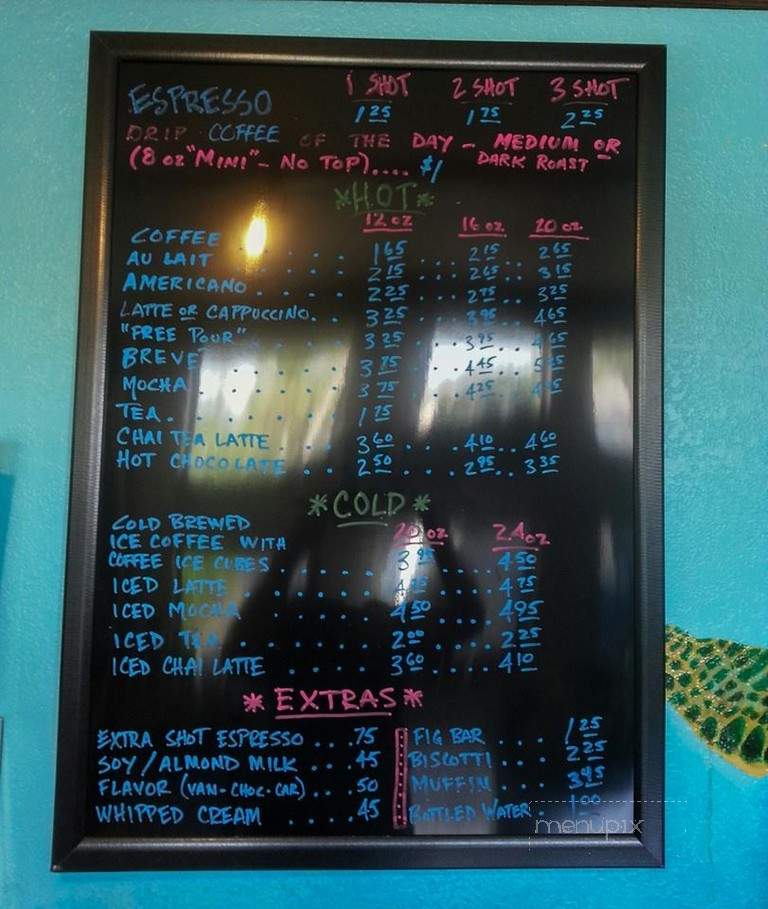 ESPRESSO 1 SHOT 2 SHOT 3 SHOT
1 25 1 75 2 25
DRIP COFFEE OF THE DAY - MEDIUM OR
(8 oz "MINI" - NO TOP).... $1 DARK ROAST
*HOT*
12 oz 16 oz 20 oz
COFFEE . . . . 1 65 . . . 2 15 . . 2 65
AU LAIT . . . . 2 15 . . . 2 65 . . 3 15
AMERICANO . . . . 2 25 . . . 2 75 . . 3 25
LATTE OR CAPPUCCINO. . 3 25 . . . 3 95 . . 4 65
"FREE POUR" . . . . 3 25 . . . 3 95 . . 4 65
BREVE . . . . 3 75 . . . 4 45 . .
MOCHA . . . . 3 75 . . . 4 25 . .
TEA . . . . . 1 75
CHAI TEA LATTE . . . . 3 60 . . . 4 10 . . 4 60
HOT CHOCOLATE . . . 2 50 . . . 2 95 . . 3 35
*COLD*
COLD BREWED
ICE COFFEE WITH 20 oz 24 oz
COFFEE ICE CUBES . . . . 3 95 . . . . 4 50
ICED LATTE . . . . . . . . . 4 75
ICED MOCHA . . . . . 4 50 . . . . 4 95
ICED TEA . . . . . . 2 00 . . . . 2 25
ICED CHAI LATTE . . . . 3 60 . . . . 4 10
*EXTRAS*
EXTRA SHOT ESPRESSO . . . .75
SOY / ALMOND MILK . . . .45
FLAVOR (VAN-CHOC-CAR) . . . .50
WHIPPED CREAM . . . . . .45
FIG BAR . . . . 1 25
BISCOTTI . . . 2 25
MUFFIN . . . 3 95
BOTTLED WATER . 1 00
menupix